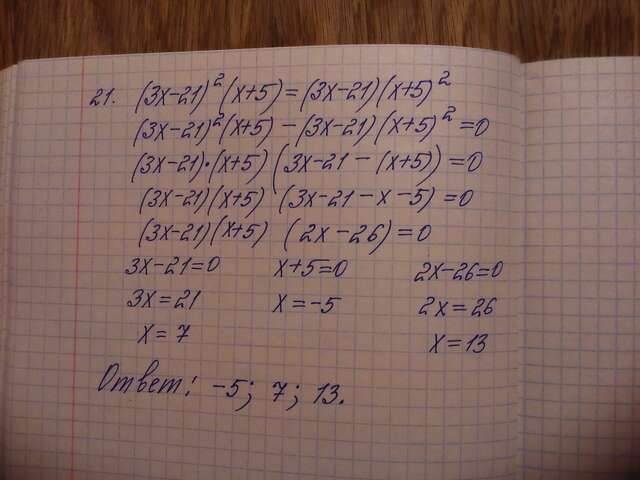 21. (3x-21)²(x+5)=(3x-21)(x+5)²
(3x-21)²(x+5) - (3x-21)(x+5)² =0
(3x-21)·(x+5) (3x-21 - (x+5)) =0
(3x-21)(x+5) (3x-21-x-5) =0
(3x-21)(x+5) (2x-26)=0
3x-21=0 x+5=0 2x-26=0
3x=21 x=-5 2x=26
x=7 x=13
Ответ: -5; 7; 13.